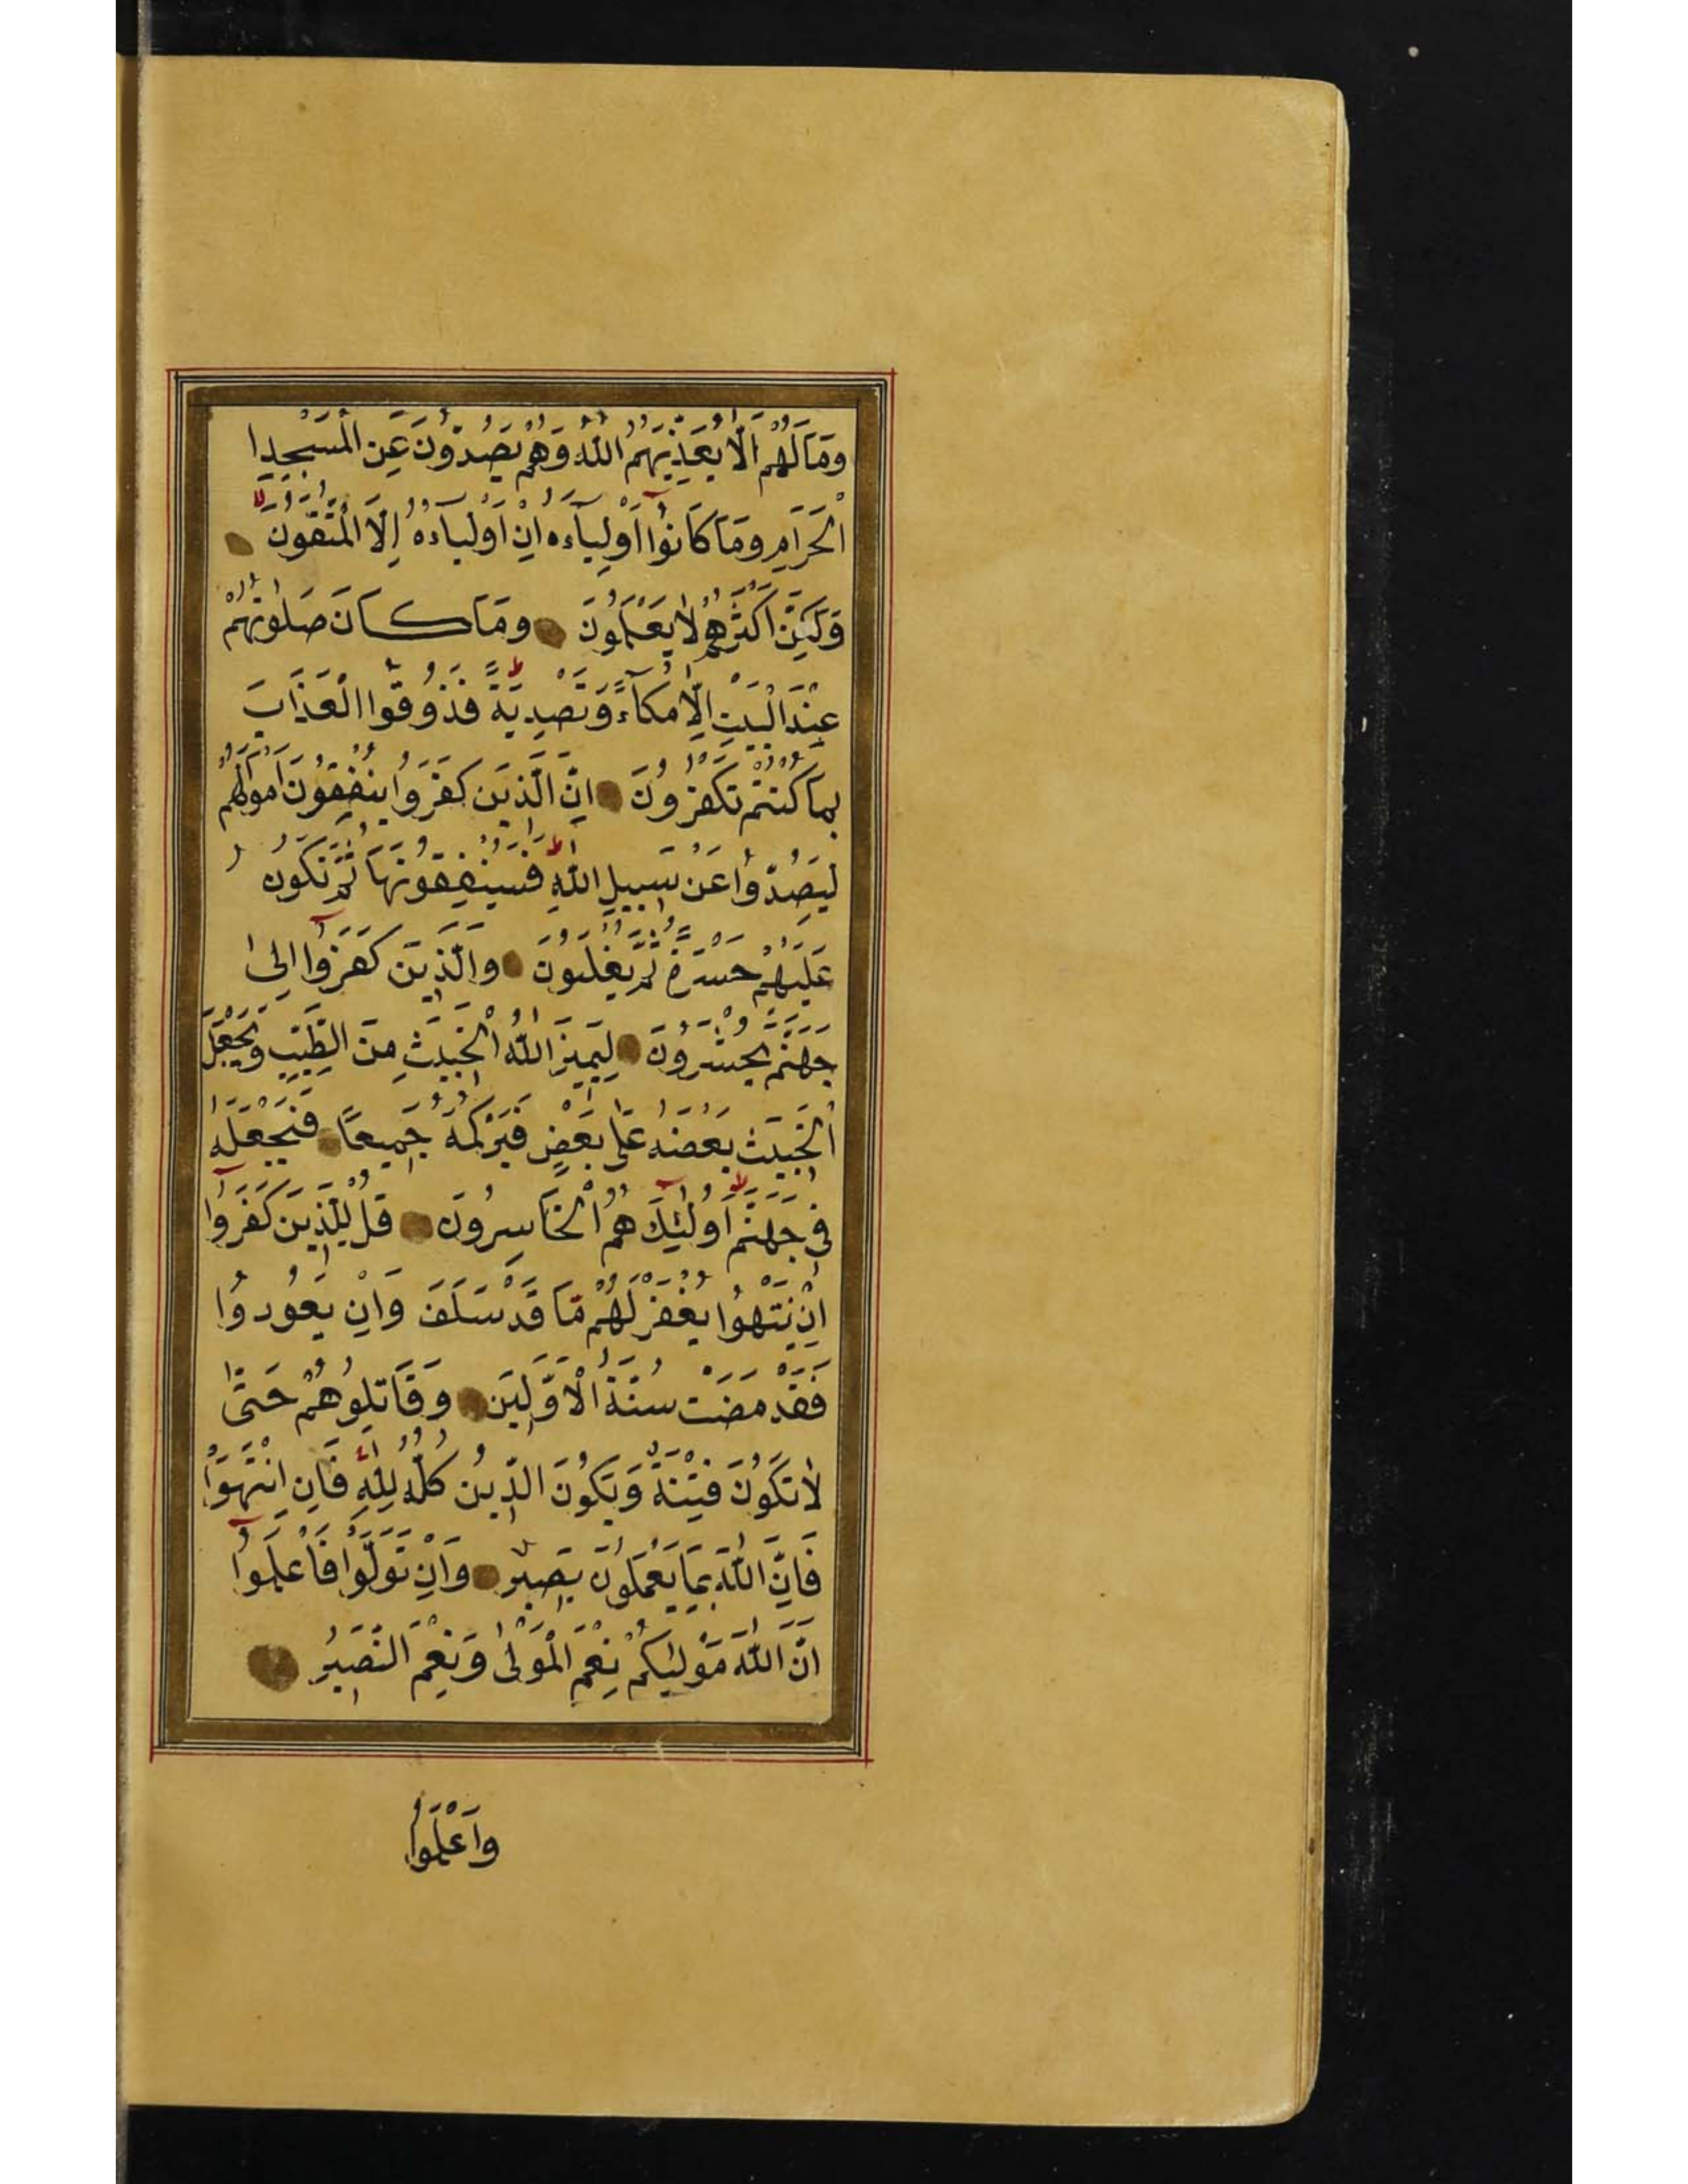 وَمَا لَهُمْ اَلَّا يُعَذِّبَهُمُ اللّٰهُ وَهُمْ يَصُدُّونَ عَنِ الْمَسْجِدِ ا
الْحَرَامِ وَمَا كَانُوٓا اَوْلِيَآءَهُ اِنْ اَوْلِيَآءُهُ اِلَّا الْمُتَّقُونَ
وَلٰكِنَّ اَكْثَرَهُمْ لَا يَعْلَمُونَ وَمَا كَانَ صَلٰوتُهُمْ
عِنْدَ الْبَيْتِ اِلَّا مُكَآءً وَتَصْدِيَةً فَذُوقُوا الْعَذَابَ
بِمَا كُنْتُمْ تَكْفُرُونَ اِنَّ الَّذِينَ كَفَرُوا يُنْفِقُونَ اَمْوَالَهُمْ
لِيَصُدُّوا عَنْ سَبِيلِ اللّٰهِ فَسَيُنْفِقُونَهَا ثُمَّ تَكُونُ
عَلَيْهِمْ حَسْرَةً ثُمَّ يُغْلَبُونَ وَالَّذِينَ كَفَرُوٓا اِلٰى
جَهَنَّمَ يُحْشَرُونَ لِيَمِيزَ اللّٰهُ الْخَبِيثَ مِنَ الطَّيِّبِ وَيَجْعَلَ
الْخَبِيثَ بَعْضَهُ عَلٰى بَعْضٍ فَيَرْكُمَهُ جَمِيعًا فَيَجْعَلَهُ
فِي جَهَنَّمَ اُولٰٓئِكَ هُمُ الْخَاسِرُونَ قُلْ لِلَّذِينَ كَفَرُوٓا
اِنْ يَنْتَهُوا يُغْفَرْ لَهُمْ مَا قَدْ سَلَفَ وَاِنْ يَعُودُوا
فَقَدْ مَضَتْ سُنَّةُ الْاَوَّلِينَ وَقَاتِلُوهُمْ حَتّٰى
لَا تَكُونَ فِتْنَةٌ وَيَكُونَ الدِّينُ كُلُّهُ لِلّٰهِ فَاِنِ انْتَهَوْا
فَاِنَّ اللّٰهَ بِمَا يَعْمَلُونَ بَصِيرٌ وَاِنْ تَوَلَّوْا فَاعْلَمُوٓا
اَنَّ اللّٰهَ مَوْلٰيكُمْ نِعْمَ الْمَوْلٰى وَنِعْمَ النَّصِيرُ
وَاعْلَمُوا